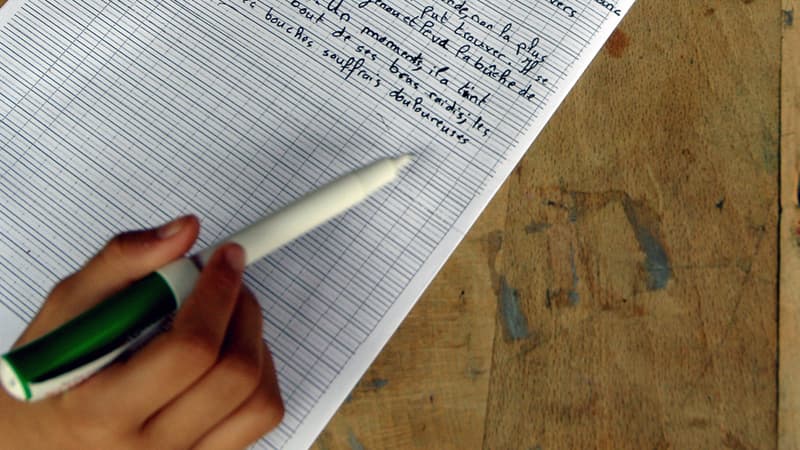 vers
non la plus
put trouver. Il se
genou et leva la bûche de
Un moment, il la tint
bout de ses bras raidis; les
bouches souffrais douloureuses